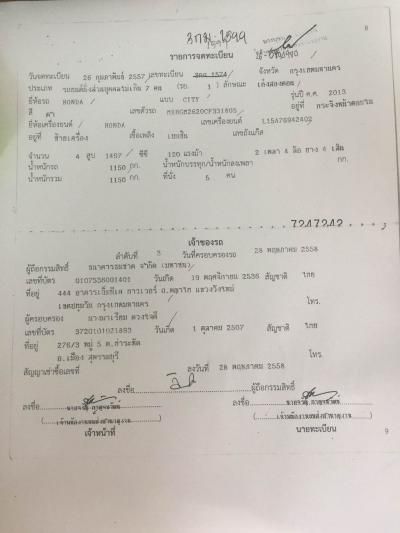 3 ก.พ. 2599
8
รายการจดทะเบียน
วันจดทะเบียน 26 กุมภาพันธ์ 2557 เลขทะเบียน จังหวัด กรุงเทพมหานคร
ประเภท รถยนต์นั่งส่วนบุคคลไม่เกิน 7 คน (รย. 1 ) ลักษณะ เก๋งสองตอน
ยี่ห้อรถ HONDA แบบ CITY รุ่นปี ค.ศ. 2013
สี ดำ เลขตัวรถ อยู่ที่
ยี่ห้อเครื่องยนต์ HONDA เลขเครื่องยนต์ L15Z6942402
อยู่ที่ ซ้ายเครื่อง เชื้อเพลิง เบนซิน เลขถังแก๊ส
จำนวน 4 สูบ 1497 ซีซี 120 แรงม้า 2 เพลา 4 ล้อ ยาง 4 เส้น
น้ำหนักรถ 1150 กก. น้ำหนักบรรทุก/น้ำหนักลงเพลา กก.
น้ำหนักรวม 1150 กก. ที่นั่ง 5 คน
7247242
เจ้าของรถ
ลำดับที่ 3 วันที่ครอบครองรถ 28 พฤษภาคม 2558
ผู้ถือกรรมสิทธิ์ ธนาคารธนชาต จำกัด (มหาชน)
เลขที่บัตร 0107536001401 วันเกิด 19 พฤศจิกายน 2536 สัญชาติ ไทย
ที่อยู่ 444 อาคารเอ็มบีเค ทาวเวอร์ ถ.พญาไท แขวงวังใหม่
เขตปทุมวัน กรุงเทพมหานคร โทร.
ผู้ครอบครอง
เลขที่บัตร 3720101021893 วันเกิด 1 ตุลาคม 2507 สัญชาติ ไทย
ที่อยู่ 276/3 หมู่ 5 ต.ท่าระหัด
อ.เมือง สุพรรณบุรี โทร.
สัญญาเช่าซื้อเลขที่ ลงวันที่ 28 พฤษภาคม 2558
ลงชื่อ ผู้ถือกรรมสิทธิ์
ลงชื่อ ลงชื่อ
เจ้าหน้าที่ นายทะเบียน
9